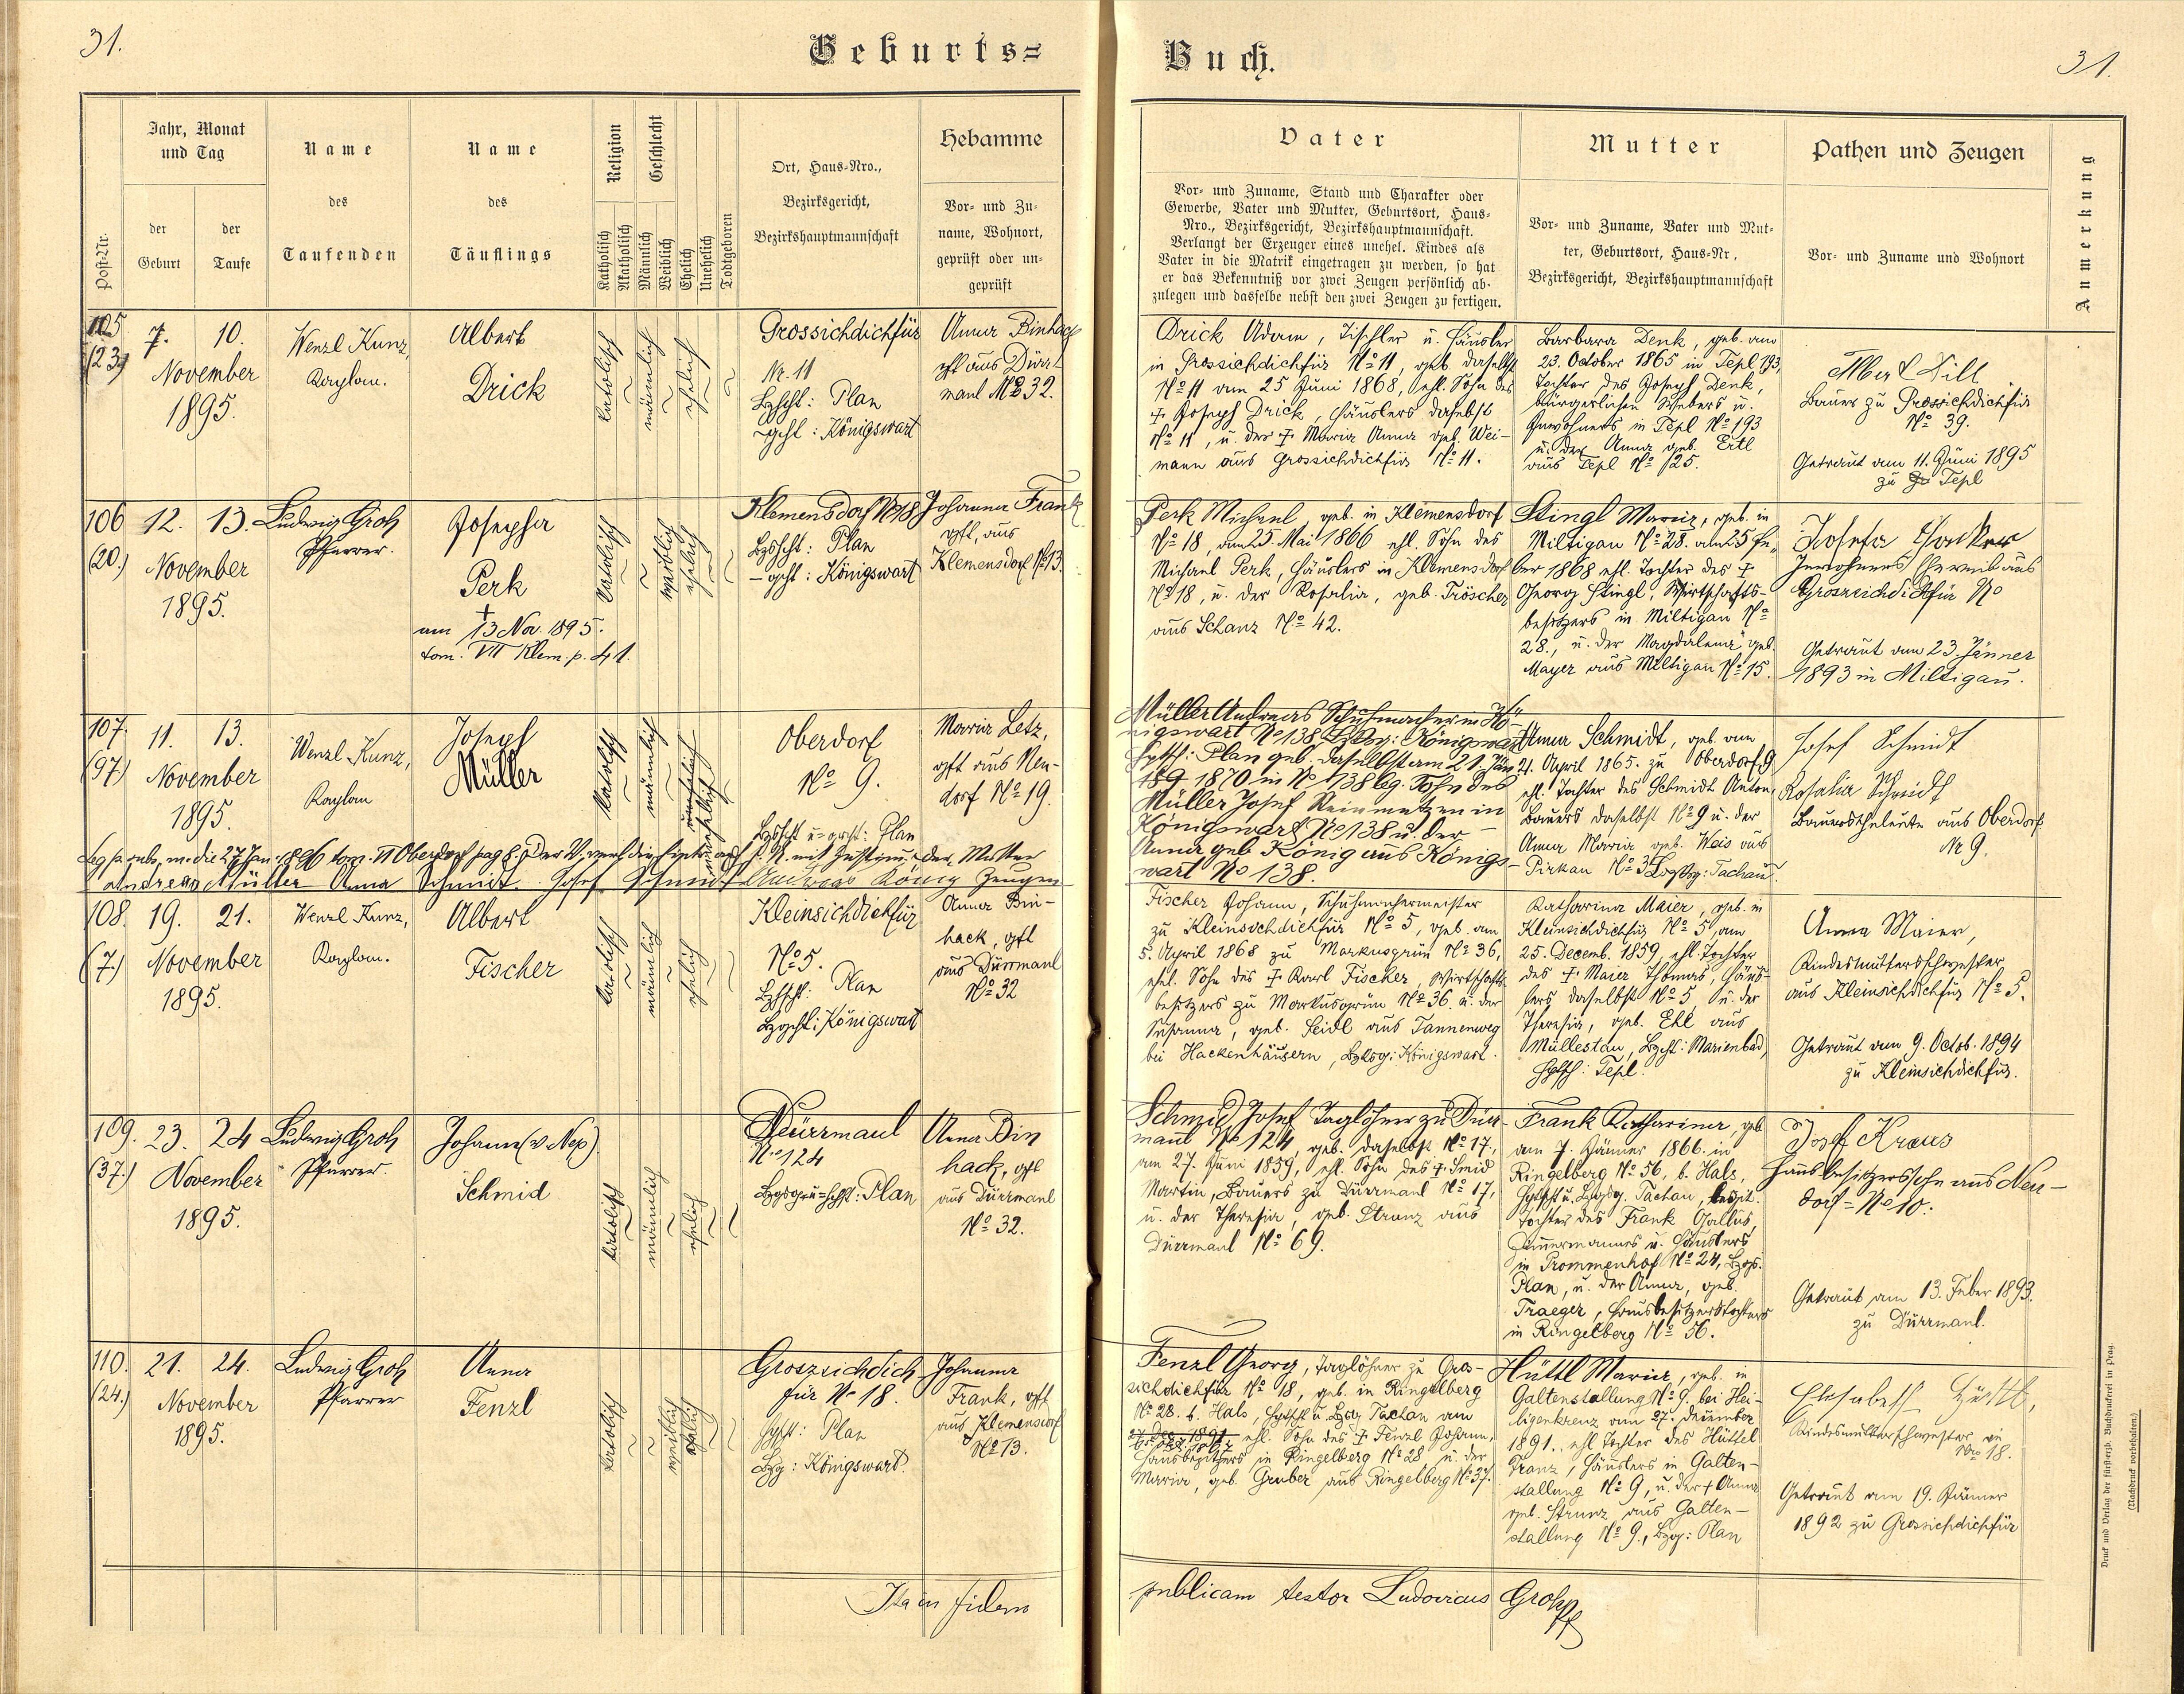 31.
Geburts=
Buch.
31.
Post-Nr.
Jahr, Monat
und Tag
der
Geburt
der
Taufe
Name
des
Taufenden
Name
des
Täuflings
Religion
Katholisch
Akatholisch
Geschlecht
Männlich
Weiblich
Ehelich
Unehelich
Todtgeboren
Ort, Haus-Nro.,
Bezirksgericht,
Bezirkshauptmannschaft
Hebamme
Vor- und Zu-
name, Wohnort,
geprüft oder un-
geprüft
Vater
Vor- und Zuname, Stand und Charakter oder
Gewerbe, Vater und Mutter, Geburtsort, Haus-
Nro., Bezirksgericht, Bezirkshauptmannschaft.
Verlangt der Erzeuger eines unehel. Kindes als
Vater in die Matrik eingetragen zu werden, so hat
er das Bekenntniß vor zwei Zeugen persönlich ab-
zulegen und dasselbe nebst den zwei Zeugen zu fertigen.
Mutter
Vor- und Zuname, Vater und Mut-
ter, Geburtsort, Haus-Nr.,
Bezirksgericht, Bezirkshauptmannschaft
Pathen und Zeugen
Vor- und Zuname und Wohnort
Anmerkung
105
(23)
7. 10.
November
1895.
Wenzl Kunz,
Kaplan.
Albert
Drick
katolisch
männlich
ehelich
Grossichdichfür
Nr. 11
Bzhpt: Plan
-gcht: Königswart
Anna Binhack
gft aus Dürr-
maul No 32.
Drick Adam, Tischler u. Häusler
in Grossichdichfür No 11, geb. daselbst
No 11 am 25 Juni 1868, ehl. Sohn des
† Joseph Drick, Häuslers daselbst
No 11, u. der † Maria Anna geb. Wei-
mann aus Grossichdichfür No 11.
Barbara Denk, geb. am
23. October 1865 in Tepl 193,
Tochter des Joseph Denk,
bürgerlichen Webers u.
Inwohners in Tepl No 193
u. der Anna geb. Ertl
aus Tepl No 125.
Albert Lill
Bauer zu Grossichdichfür
No 39.
Getraut am 11. Juni 1895
zu Tepl
106
(20.)
12. 13.
November
1895.
Ludwig Groh
Pfarrer.
Josepha
Perk
†
am 13 Nov. 1895.
tom. VII Klem. p. 41.
katolisch
weiblich
ehelich
Klemensdorf No 18
Bzhpt: Plan
-gcht: Königswart
Johanna Frank
gft, aus
Klemensdorf No 13.
Perk Michael, geb. in Klemensdorf
No 18, am 25 Mai 1866 ehl. Sohn des
Michael Perk, Häuslers in Klemensdorf
No 18, u. der Rosalia, geb. Tröscher
aus Schanz No 42.
Stingl Maria, geb. in
Miltigau No 28. am 25 Fe-
ber 1868 ehl. Tochter des †
Georg Stingl, Wirtschafts-
besitzers in Miltigau No
28., u. der Magdalena geb.
Mayer aus Miltigau No 15.
Josefa
Grossichdichfür No
Getraut am 23. Jänner
1893 in Miltigau.
107.
(97)
11. 13.
November
1895.
Wenzl Kunz,
Kaplan
Joseph
Müller
katolisch
männlich
unehelich
Oberdorf
No 9.
Bzhpt u=gcht: Plan
Maria Letz,
gft aus Neu-
dorf No 19.
Müller Andreas Schuhmacher in Kö-
nigswart No 138 Bzksg: Königswart
Hptsch: Plan geb. daselbst am 21. Jän
189 1870 in No 138 eg. Sohn des
Müller Josef Steinmetzen in
Königswart No 138 u. der
Anna geb. König aus Königs-
wart No 138.
Anna Schmidt, geb. am
21. April 1865. zu Oberdorf 9
ehl. Tochter des Schmidt Anton,
Bauers daselbst No 9 u. der
Anna Maria geb. Weis aus
Pirkau No 35 Bzksg: Tachau.
Josef Schmidt
Rosalia Schmidt
Bauerstheleute aus Oberdorf
Nr 9.
Andreas Müller Anna Schmidt Josef Schmidt Andreas König Zeugen
108.
(7.)
19. 21.
November
1895.
Wenzl Kunz,
Kaplan.
Albert
Fischer
katolisch
männlich
ehelich
Kleinsichdichfür
No 5.
Bzhptsch: Plan
Bzgcht: Königswart
Anna Bin-
hack, gft
aus Dürrmaul
No 32
Fischer Johann, Schuhmachermeister
zu Kleinsichdichfür No 5, geb. am
5. April 1868 zu Markusgrün No 36,
ehel. Sohn des † Karl Fischer, Wirtschafts-
besitzers zu Markusgrün No 36 u. der
Susanna, geb. Seidl aus Tannenweg
bei Hackenhäusern, Bzksg: Königswart.
Katharina Maier, geb. in
Kleinsichdichfür No 5, am
25. Decemb. 1859, ehl. Tochter
des † Maier Thomas, Häus-
lers daselbst No 5, u. der
Theresia, geb. Ehl aus
Müllestau, Bzcht: Marienbad,
Hptsch: Tepl.
Anna Maier,
Kindesmuttersschwester
aus Kleinsichdichfür No 5.
Getraut am 9. Octob. 1894
zu Kleinsichdichfür.
109.
(37.)
23. 24
November
1895.
Ludwig Groh
Pfarrer.
Johann (v Nep)
Schmid
katolisch
männlich
ehelich
Dürrmaul
No 124
Bzgsg u=hptsch: Plan
Anna Bin
hack, gft
aus Dürrmaul
No 32.
Schmid Josef Taglöhner zu Dürr-
maul No 124, geb. daselbst No 17,
am 27. Juni 1859, ehl. Sohn des † Smid
Martin, Bauers zu Dürrmaul No 17,
u. der Theresia, geb. Strunz aus
Dürrmaul No 69.
Frank Katharina, geb
am 7. Jänner 1866. in
Ringelberg No 56, b. Hals,
Hptsch u. Bzksg. Tachau, legit.
Tochter des Frank Gallus,
Zimmermannes u. Häuslers
in Prommenhof No 24, Bzgs.
Plan, u. der Anna, geb.
Traeger, Hausbesitzerstochters
in Ringelberg No 56.
Josef Kraus
Hausbesitzerssohn aus Neu-
dorf - No 10.
Getraut am 13. Feber 1893.
zu Dürrmaul.
110.
(24.)
21. 24.
November
1895.
Ludwig Groh
Pfarrer
Anna
Fenzl
katolisch
weiblich
ehelich
Groszsichdich
für No 18.
Hptsch: Plan
Bzg: Königswart.
Johanna
Frank, gft
aus Klemensdorf
No 13.
Fenzl Georg, Taglöhner zu Gros-
sichdichfür No 18, geb. in Ringelberg
No 28. b. Hals, Hptsch u. Bzksg Tachau am
ehl. Sohn des † Fenzl Johann,
Hausbesitzers in Ringelberg No 28, u. der
Maria, geb. Gruber aus Ringelberg No 37.
Hüttl Maria, geb. in
Galtenstallung No 9. bei Hei-
ligenkreuz am 27. Dezember
1891.. ehl Tochter des Hüttel
Franz, Häuslers in Galten-
stallung No 9, u. der † Anna
geb. Strunz aus Galten-
stallung No 9., Bzg: Plan
Elisabeth Hüttl,
Kindesmutterschwester in
Nro 18.
Getraut am 19. Jänner
1892 zu Grossichdichfür
Ita in fidem
publicam testor Ludovicus Groh
Druck und Verlag der fürsterzb. Buchdruckerei in Prag.
(Nachdruck vorbehalten.)